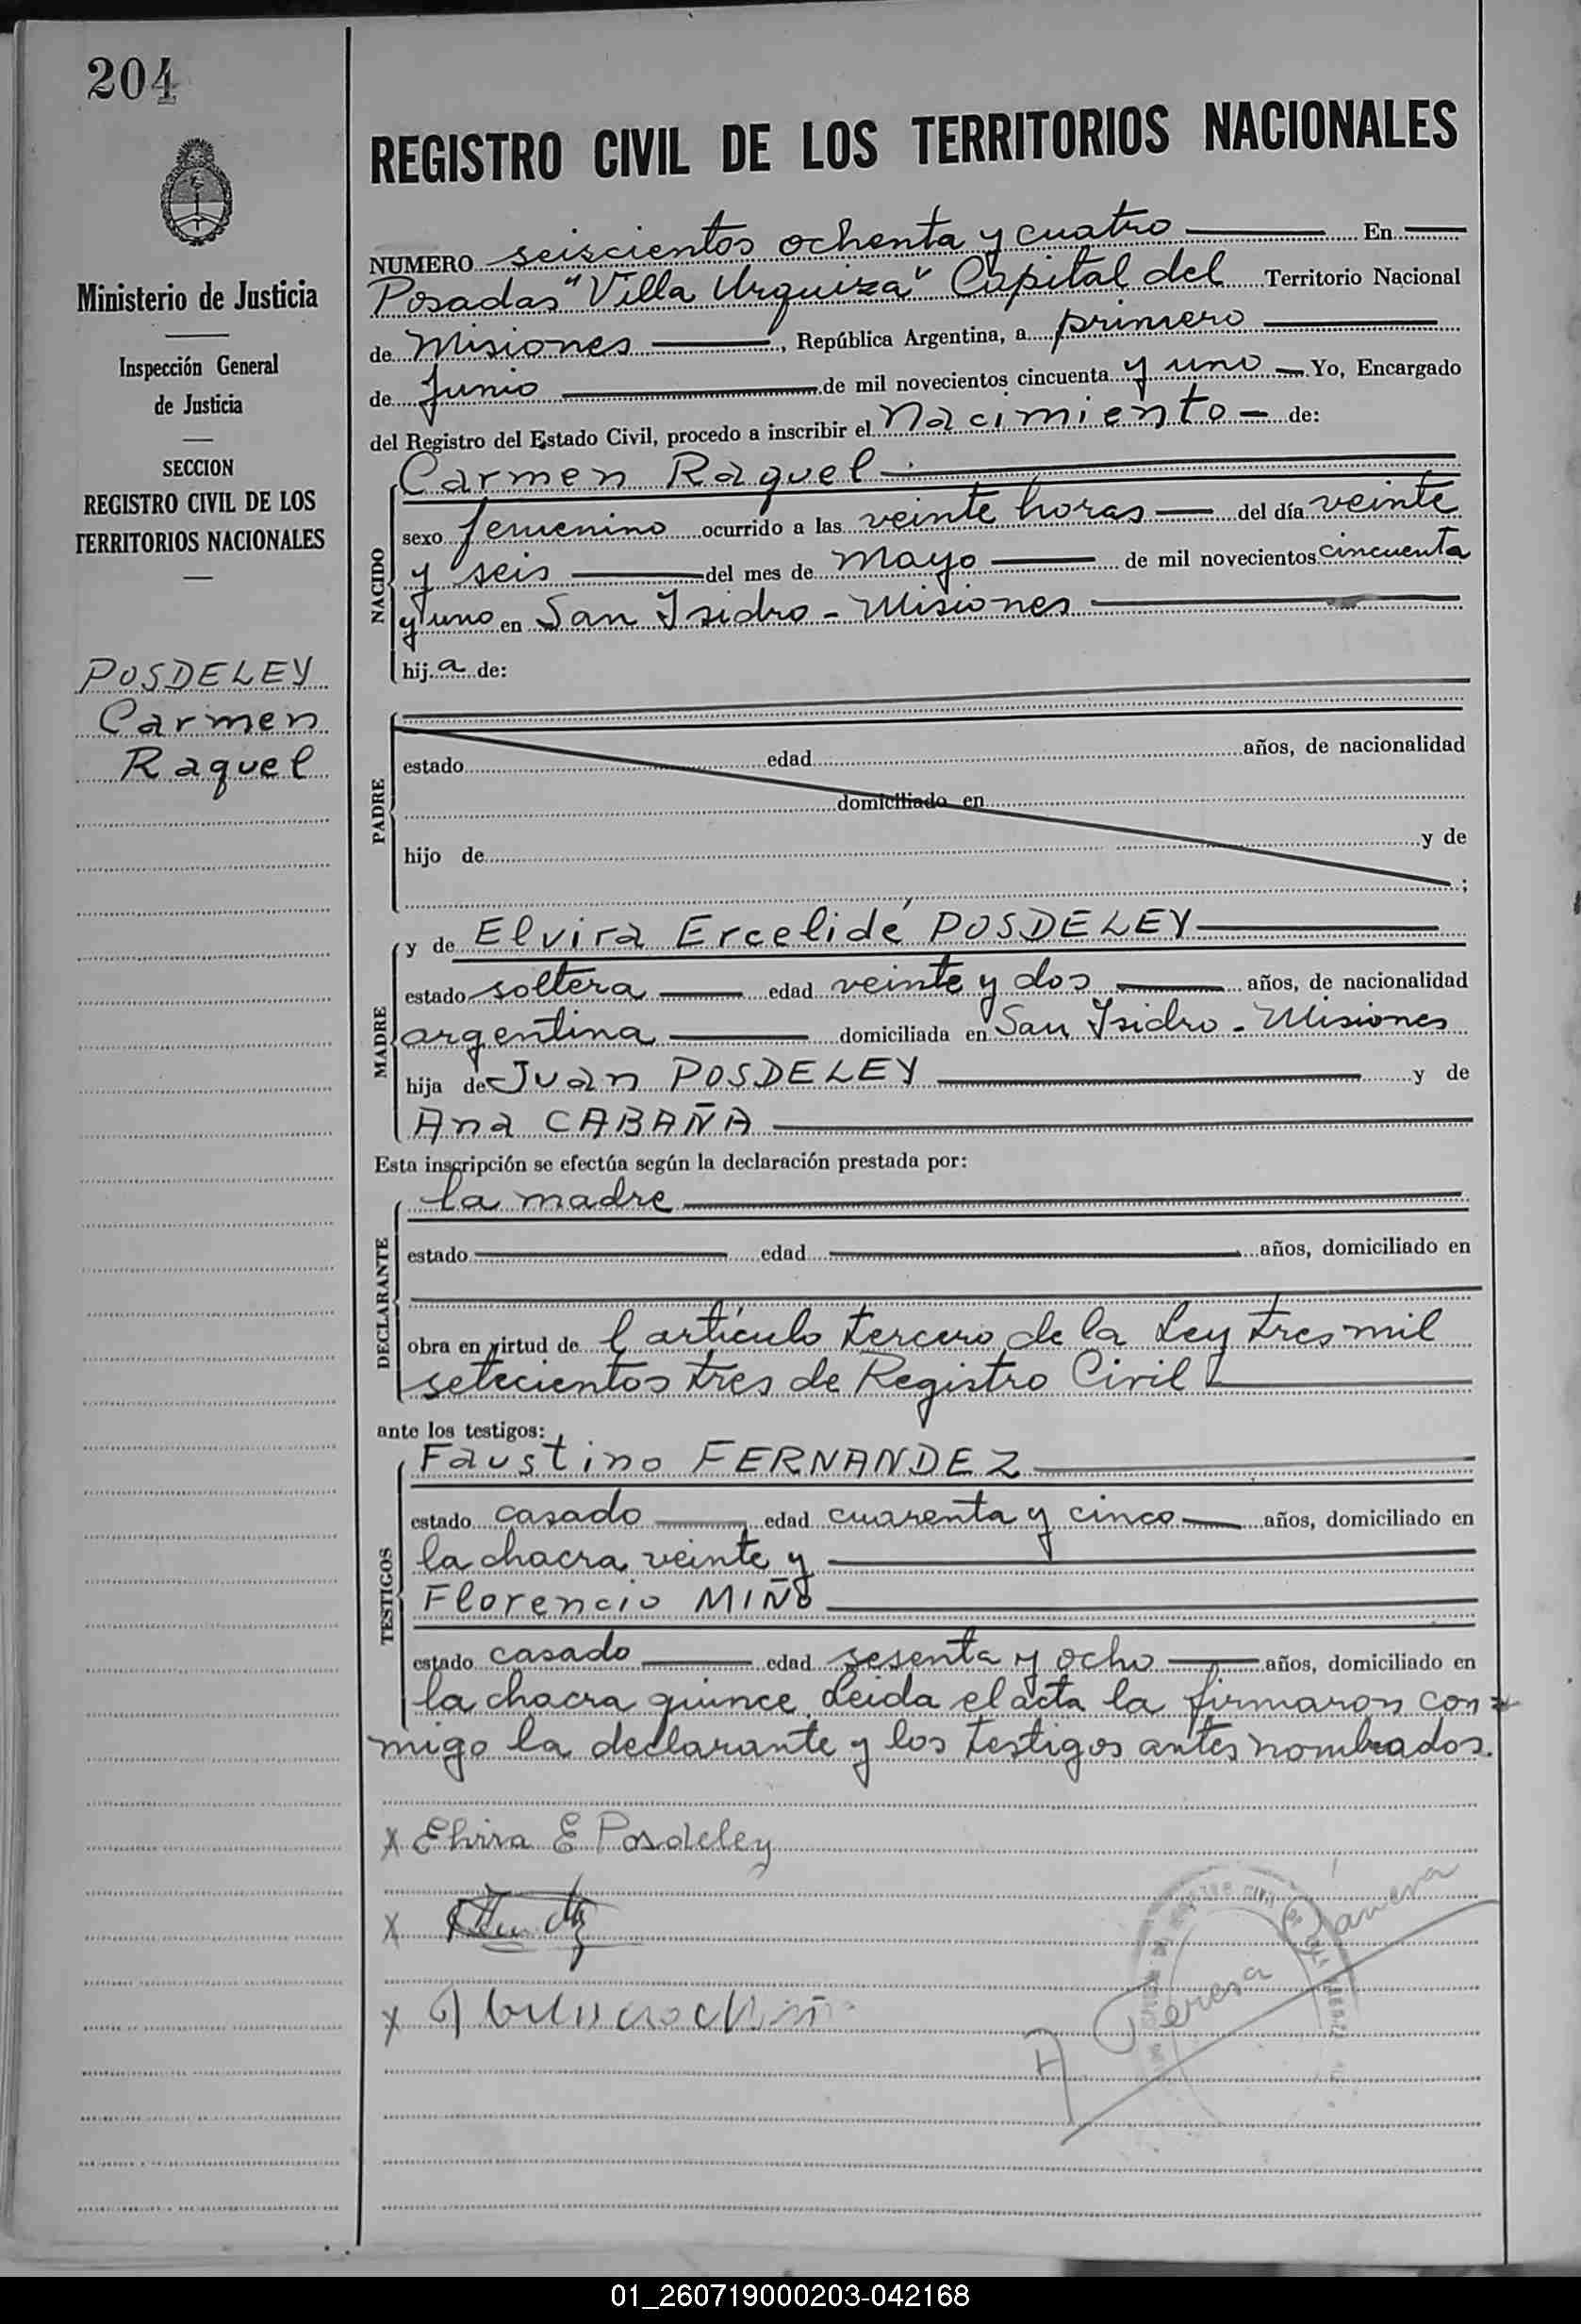 204
REGISTRO CIVIL DE LOS TERRITORIOS NACIONALES
Ministerio de Justicia
Inspección General
de Justicia
SECCION
REGISTRO CIVIL DE LOS
TERRITORIOS NACIONALES
POSDELEY
Carmen
Raquel
NUMERO seiscientos ochenta y cuatro En
Posadas "Villa Urquiza" Capital del Territorio Nacional
de Misiones, República Argentina, a primero
de Junio de mil novecientos cincuenta y uno Yo, Encargado
del Registro del Estado Civil, procedo a inscribir el Nacimiento de:
NACIDO
Carmen Raquel
sexo femenino ocurrido a las veinte horas del día veinte
y seis del mes de mayo de mil novecientos cincuenta
y uno en San Isidro - Misiones
hija de:
PADRE
estado edad años, de nacionalidad
domiciliado en
hijo de y de
;
MADRE
y de Elvira Ercelidé POSDELEY
estado soltera edad veinte y dos años, de nacionalidad
argentina domiciliada en San Isidro - Misiones
hija de Juan POSDELEY y de
Ana CABAÑA
Esta inscripción se efectúa según la declaración prestada por:
DECLARANTE
la madre
estado edad años, domiciliado en
obra en virtud de l artículo tercero de la Ley tres mil
setecientos tres de Registro Civil
ante los testigos:
TESTIGOS
Faustino FERNANDEZ
estado casado edad cuarenta y cinco años, domiciliado en
la chacra veinte y
Florencio MIÑO
estado casado edad sesenta y ocho años, domiciliado en
la chacra quince. Leida el acta la firmaron con=
migo la declarante y los testigos antes nombrados.
x Elvira E Posdeley
x
x
Teresa
01_260719000203-042168